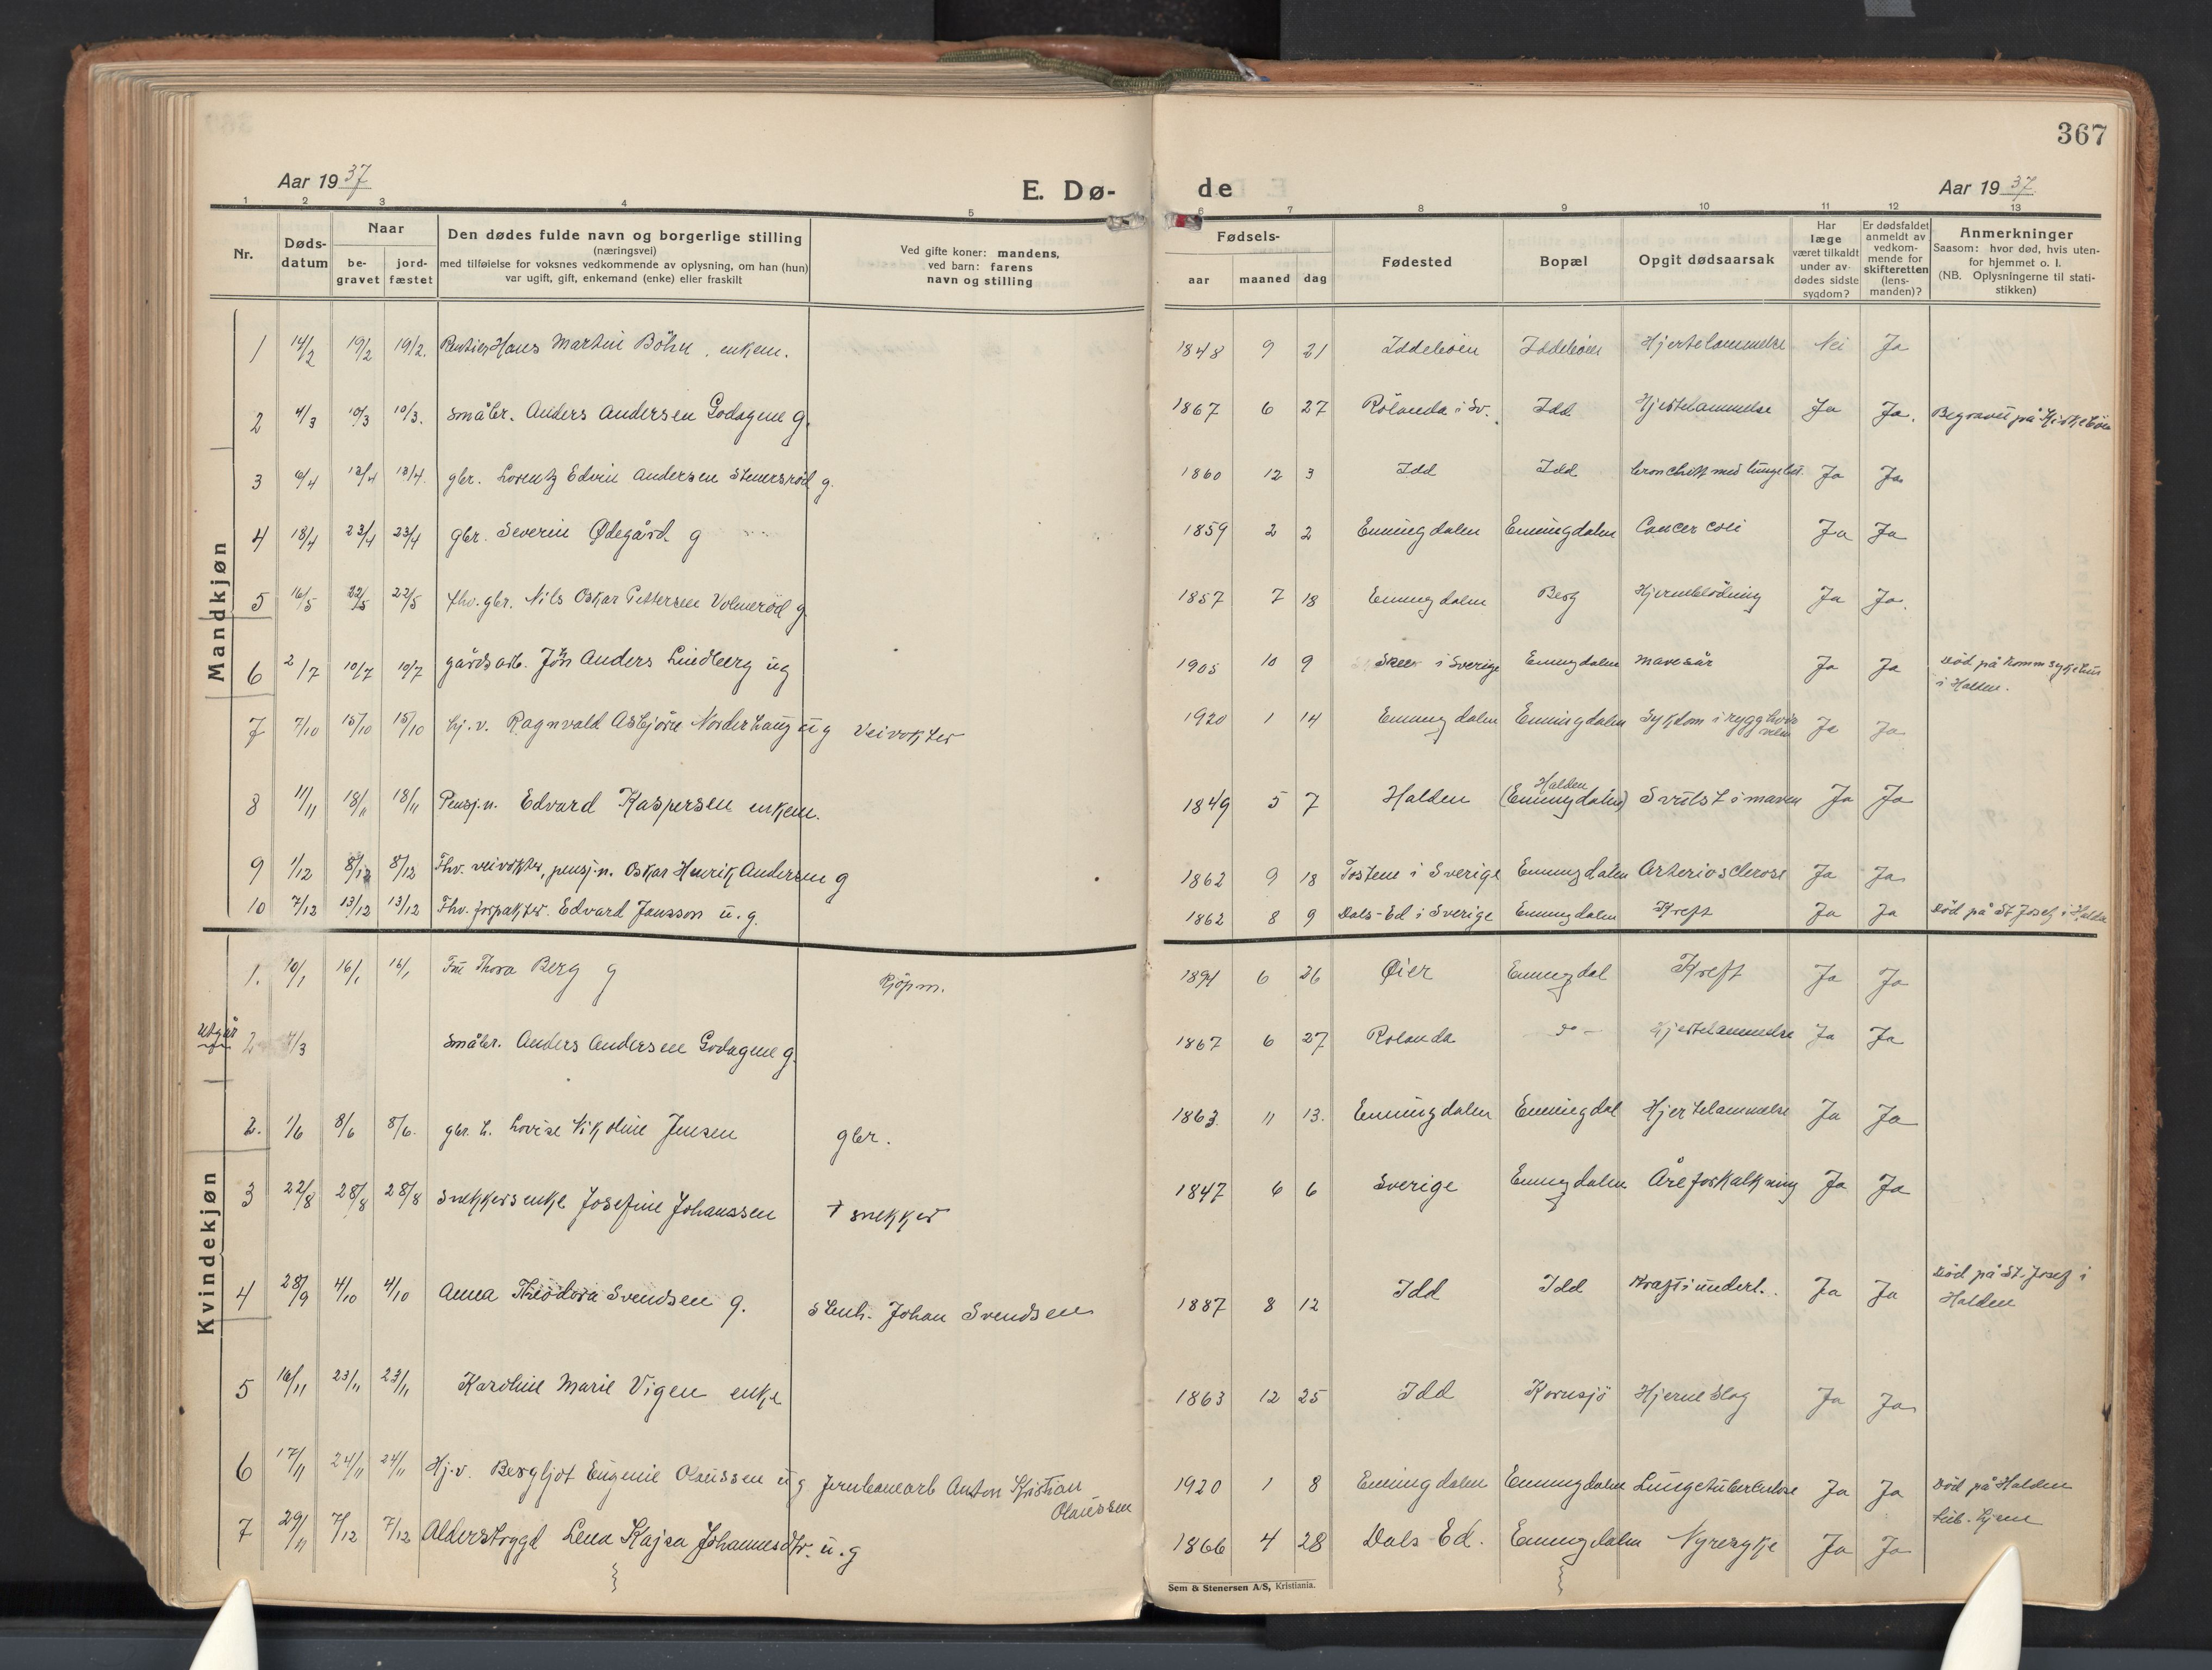 367
Aar 1937
E. Dø-
de
Aar 1937
1 2 3 4 5 6 7 8 9 10 11 12 13
Nr.
Døds-
datum
Naar
be-
gravet
jord-
fæstet
Den dødes fulde navn og borgerlige stilling
(næringsvei)
med tilføielse for voksnes vedkommende av oplysning, om han (hun)
var ugift, gift, enkemand (enke) eller fraskilt
Ved gifte koner: mandens,
ved barn: farens
navn og stilling
Fødsels-
aar maaned dag
Fødested
Bopæl
Opgit dødsaarsak
Har
læge
været tilkaldt
under av-
dødes sidste
sygdom?
Er dødsfaldet
anmeldt av
vedkom-
mende for
skifteretten
(lens-
manden)?
Anmerkninger
Saasom: hvor død, hvis uten-
for hjemmet o. l.
(NB. Oplysningerne til stati-
stikken)
Mandkjøn
1 14/2 19/2 19/2. Rentier Hans Martin Böhn, enkem. 1848 9 21 Iddeböen Iddeböen Hjertelammelse Nei Ja
2 4/3 10/3 10/3. småbr. Anders Andersen Godagene g. 1867 6 27 Rölanda i Sv. Idd Hjertelammelse Ja Ja. Begravet på Kirkeböen
3 6/4 12/4 12/4. gbr. Lorentz Edvin Andersen Stenersröd g. 1860 12 3 Idd Idd bronchitt med lungebet. Ja Ja
4 18/4 23/4 23/4 gbr. Severin Ødegård g 1859 2 2 Enningdalen Enningdalen Cancer coli Ja Ja
5 16/5 22/5 22/5 fhv. gbr. Nils Oskar Pettersen Volneröd g. 1857 7 18 Enningdalen Berg Hjerneblödning Ja Ja.
6 2/7 10/7 10/7 gårdsarb. Jön Anders Lindberg ug 1905 10 9 Skee i Sverige Enningdalen mavesår Ja Ja Död på komm sykehus
i Halden.
7 7/10 15/10 15/10 hj. v. Ragnvald Asbjörn Norderhaug ug Veivokter 1920 1 14 Enningdalen Enningdalen Sykdom i rygghvir
velen Ja Ja
8 11/11 18/11 18/11 Pensj.n. Edvard Kaspersen enkem. 1849 5 7 Halden Halden
(Enningdalen) Svulst i maven Ja Ja
9 1/12 8/12 8/12 Fhv. veivokter, pensj.n. Oskar Henrik Andersen g 1862 9 18 Tostene i Sverige Enningdalen Arteriosclerose Ja Ja
10 7/12 13/12 13/12 Fhv. forpakter. Edvard Jansson u. g. 1862 8 9 Dals-Ed i Sverige Enningdalen Kreft Ja Ja Död på St Josef i Halden
Kvindekjøn
1. 10/1 16/1 16/1 Fru Thora Berg g Kjöpm. 1894 6 26 Øier Enningdal Kreft Ja Ja
Utgår 2 4/3 småbr. Anders Andersen Godagene g. 1867 6 27 Rolanda do - Hjertelammelse Ja Ja
2. 1/6 8/6 8/6. gbr. h. Lovise Nikoline Jensen gbr. 1863 11 13. Enningdalen Enningdal Hjertelammelse Ja Ja
3 22/8 28/8 28/8 snekkers enke Josefine Johanssen † snekker 1847 6 6 Sverige Enningdalen Åreforkalkning Ja Ja
4 28/9 4/10 4/10 Anna Theodora Svendsen g. Stenh. Johan Svendsen 1887 8 12 Idd Idd Kreft i underl. Ja Ja Död på St. Josef i
Halden
5 16/11 23/11 23/11 Karoline Marie Vigen enke 1863 12 25 Idd Kornsjö Hjerneslag Ja Ja
6 17/11 24/11 24/11 Hj. v. Bergljot Eugenie Olaussen ug Jernbanearb Anton Kristian
Olaussen 1920 1 8 Enningdalen Enningdalen Lungetuberkulose Ja Ja Död på Halden
tub. hjem
7 29/11 7/12 7/12 Alderstrygd Lena Kajsa Johannesdtr. u. g 1866 4 28 Dals-Ed. Enningdalen Nyresyke Ja Ja
Sem & Stenersen A/S, Kristiania.